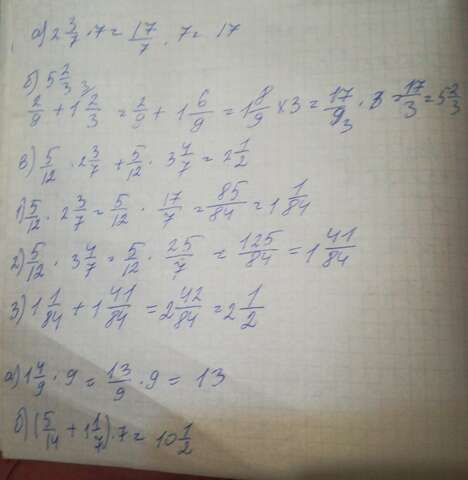 а) 2 3/7 · 7 = 17/7 · 7 = 17
б) 5 2/3
2/9 + 1 2/3 = 2/9 + 1 6/9 = 1 8/9 × 3 = 17/9 · 3 = 17/3 = 5 2/3
в) 5/12 · 2 3/7 + 5/12 · 3 4/7 = 2 1/2
1) 5/12 · 2 3/7 = 5/12 · 17/7 = 85/84 = 1 1/84
2) 5/12 · 3 4/7 = 5/12 · 25/7 = 125/84 = 1 41/84
3) 1 1/84 + 1 41/84 = 2 42/84 = 2 1/2
а) 1 4/9 · 9 = 13/9 · 9 = 13
б) (5/14 + 1 1/7) · 7 = 10 1/2